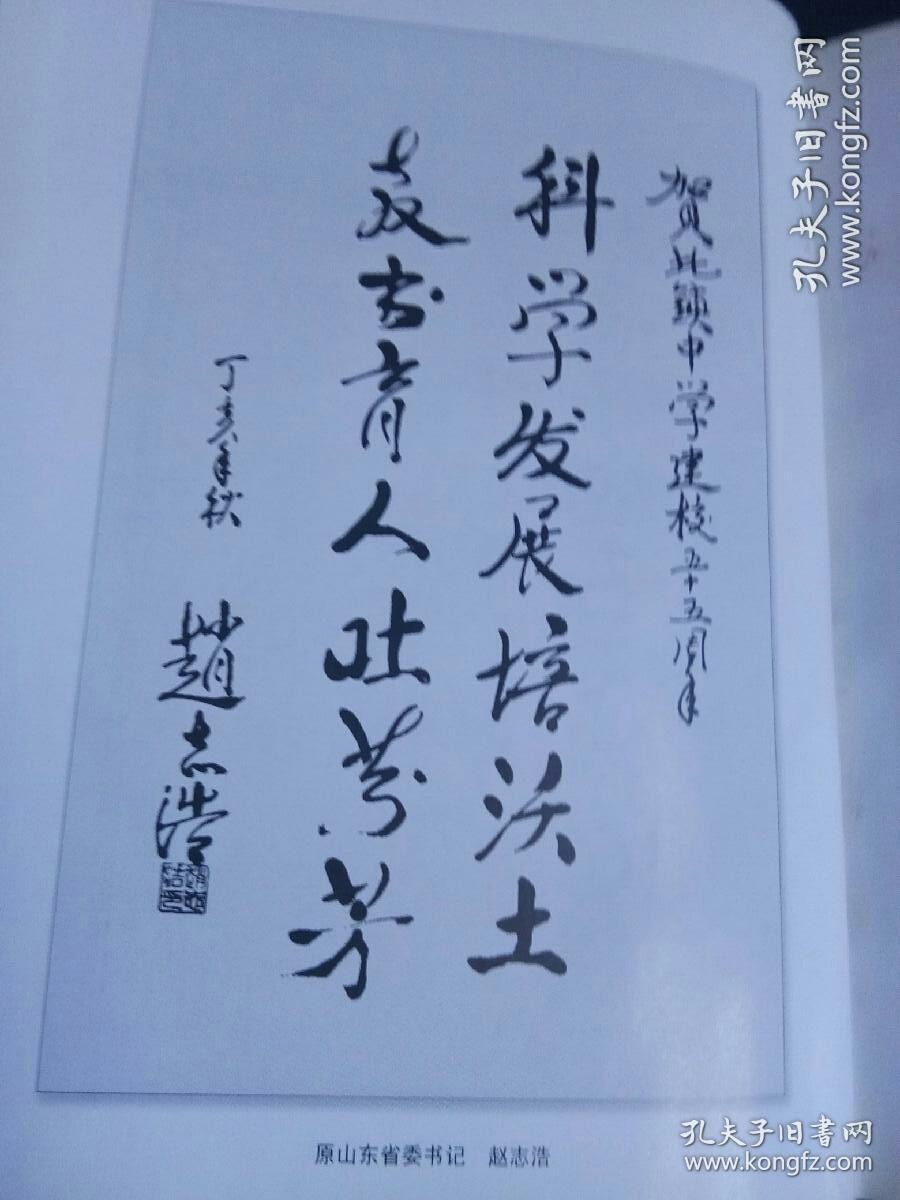 贺北镇中学建校五十五周年
科学发展培沃土
教书育人吐芬芳
丁亥年秋
趙志浩
原山东省委书记 赵志浩
孔夫子旧书网
www.kongfz.com
孔夫子旧书网
www.kongfz.com